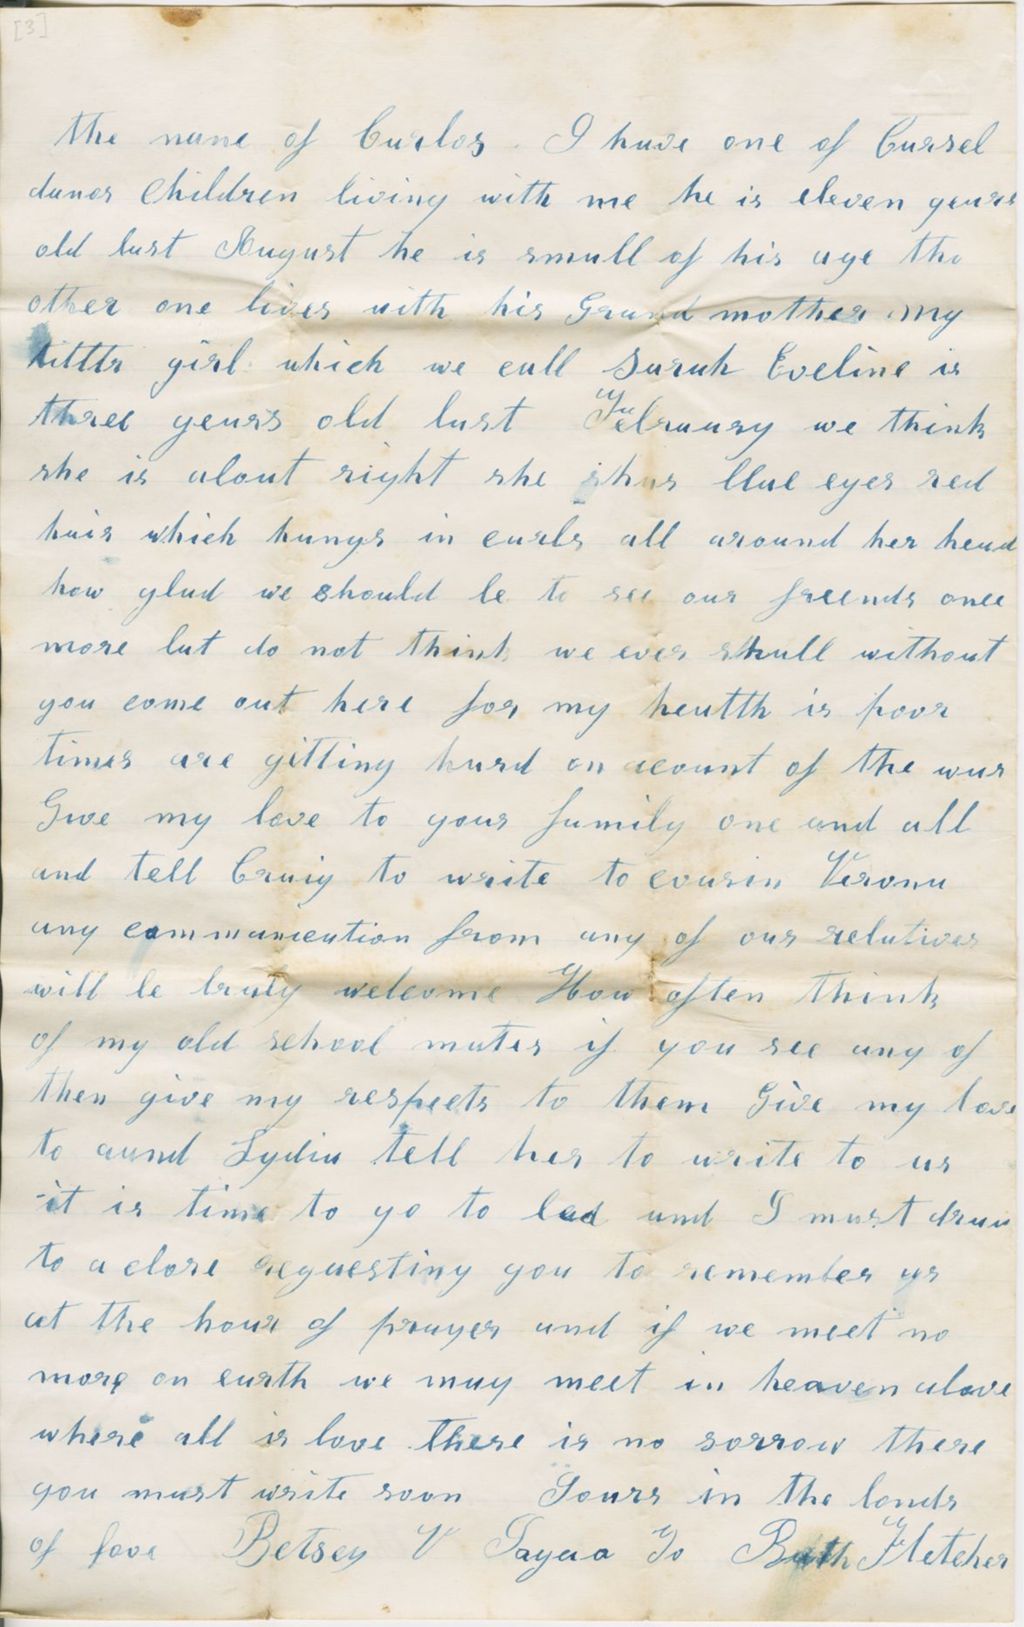 [3]
the name of Carlos. I have one of Cursel
danas Children living with me he is eleven years
old last August he is small of his age the
other one lives with his Grand mother my
little girl which we call Sarah Eveline is
three years old last February we think
she is about right she has blue eyes red
hair which hangs in curls all around her head
how glad we should be to see our freends once
more but do not think we ever shall without
you come out here for my health is poor
times are gitting hard on acount of the war
Give my love to your family one and all
and tell Craig to write to cousin Verona
any communication from any of our relatives
will be truly welcome How often think
of my old school mates if you see any of
then give my respects to them Give my love
to aund Lydia tell her to write to us
it is time to go to bed and I must draw
to a close requesting you to remember us
at the hour of prayer and if we meet no
more on earth we may meet in heaven above
where all is love there is no sorrow there
you must write soon Yours in the bonds
of love Betsey V To Ruth Fletcher